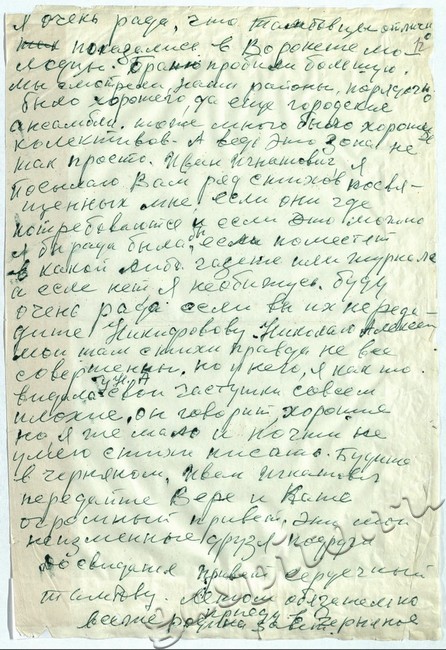 Я очень рада, что Тамбовцы отлично
показались в Воронеже мо-
лодцы. Браню пробили большую.
мы смотрели наши районы, порядочно
было хорошего да еще городские
ансамбли. тоже много было хороших
колективов. А ведь это зона не
так просто. Иван Игнатович я
посылаю Вам ряд стихов посвя-
щенных мне если они где
потребоваются и если это можно
я бы рада была, если поместят
в какой либо газете или журнале
а если нет я необижусь. буду
очень рада если вы их переда-
дите Никифорову Николаю Алексеев
мои там стихи правда не все
совершенны, но и него, я как то
видела свои частушки совсем
плохие, он говорит, хорошие
но я же мало и почти не
умею стихи писать. Будите
в черняном, Иван Игнатович
передайте Вере и Кате
огромный привет. Эти мои
неизменные друзья подруги
до свидания привет сердечный
Тамбову. Летом обязательно
приеду в черняное